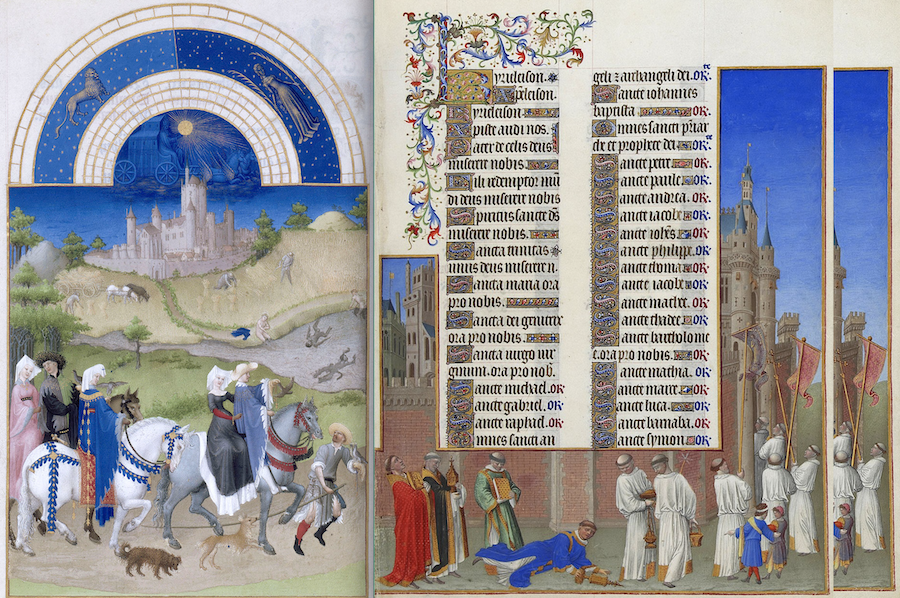 Kyrieleison.
Xpeleison.
Kyrieleison.
Xpiste audi nos.
Pater de celis deus
miserere nobis.
Fili redemptor mu
di deus miserere nobis
Spiritus sancte ds
miserere nobis.
Sancta trinitas
unus deus miserere n.
Sancta maria ora
pro nobis.
Sancta dei genitrix
ora pro nobis.
Sancta uirgo uir
ginum. ora pro nob.
Sancte michael. or
Sancte gabriel. or
Sancte raphael. or
Omnes sancti an
geli z archangeli dei. or.
Sancte iohannes
baptista. or.
Omnes sancti priar
che et prophete dei. or.
Sancte petre or.
Sancte paule. or.
Sancte andrea. or.
Sancte iacobe or.
Sancte iohes. or.
Sancte philippe. or.
Sancte thoma. or.
Sancte iacobe or.
Sancte mathee. or.
Sancte thadee. or.
Sancte bartholome
e. ora pro nobis. or.
Sancte mathia. or.
Sancte marce. or.
Sancte luca. or.
Sancte barnaba. or.
Sancte symon. or